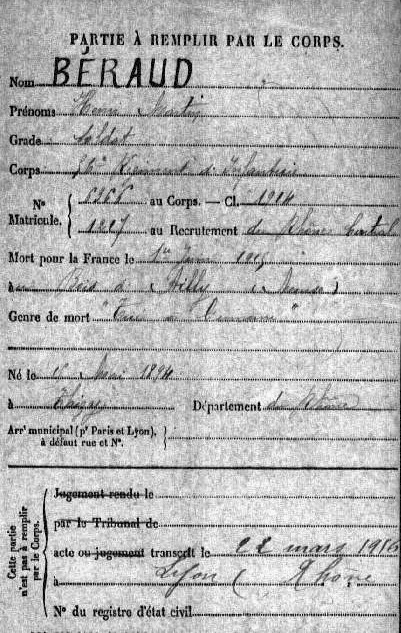 PARTIE À REMPLIR PAR LE CORPS.
Nom BÉRAUD
Prénoms
Grade Soldat
Corps Régiment d'Infanterie
N° Matricule. { au Corps. — Cl. 1914
1227 au Recrutement du Rhône Central
Mort pour la France le 1er Juin 1915
au Bois d'Ailly (Meuse)
Genre de mort "Tué à l'Ennemi"
Né le Mai 1894
à Département du Rhône
Arrt municipal (pr Paris et Lyon),
à défaut rue et N°.
Cette partie n'est pas à remplir par le Corps.
Jugement rendu le
par le Tribunal de
acte ou jugement transcrit le 22 mars 1916
à Lyon (Rhône
N° du registre d'état civil